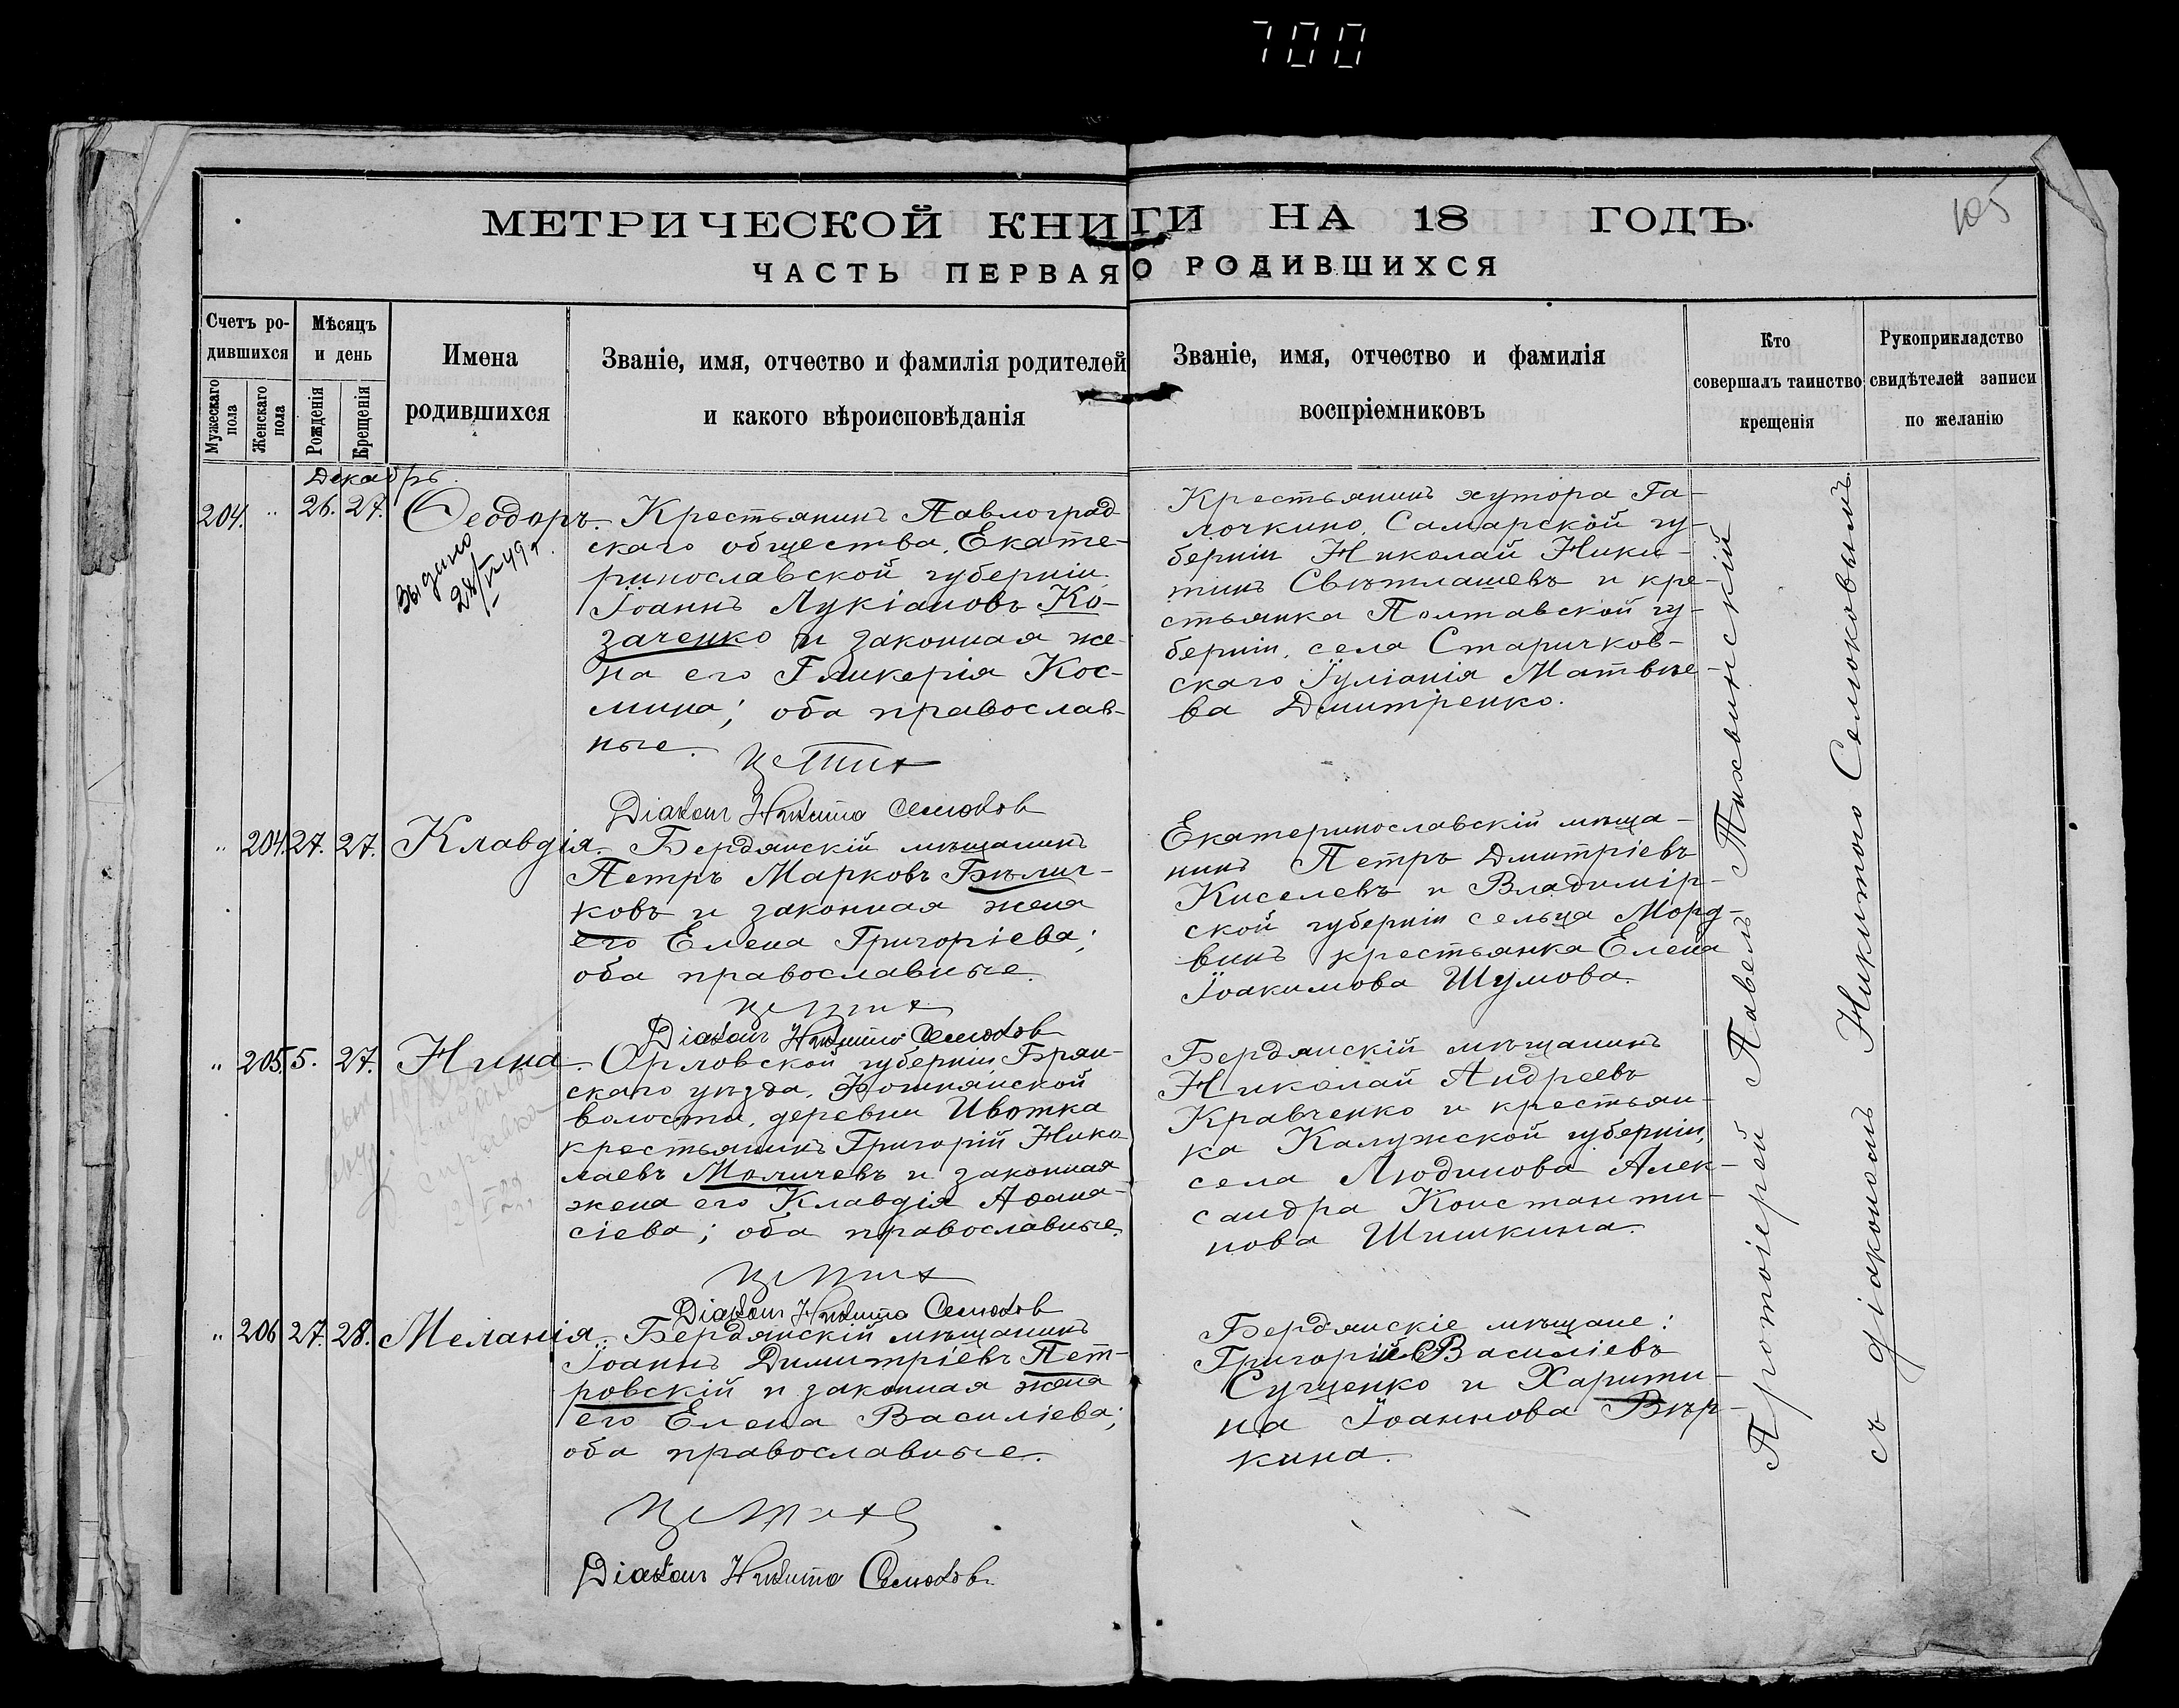 700
105
МЕТРИЧЕСКОЙ КНИГИ НА 18 ГОДЪ.
ЧАСТЬ ПЕРВАЯ О РОДИВШИХСЯ
Счетъ ро-
дившихся
Мужескаго пола
Женскаго пола
Мѣсяцъ
и день
Рожденія
Крещенія
Имена
родившихся
Званіе, имя, отчество и фамилія родителей
и какого вѣроисповѣданія
Званіе, имя, отчество и фамилія
воспріемниковъ
Кто
совершалъ таинство
крещенія
Рукоприкладство
свидѣтелей записи
по желанію
Декабрь.
204. " 26. 27. Ѳеодоръ.
Выдано
28/V 49 г.
Крестьянинъ Павлоград
скаго общества, Екате-
ринославской губерніи
Іоаннъ Лукіановъ Ко-
заченко и законная же-
на его Гликерія Кос-
мина; оба православ-
ные.
Діаконъ Никита Семоков
Крестьянинъ хутора Га-
лочкино, Самарской гу-
берніи Николай Ники-
тинъ Свѣтлашевъ и кре-
стьянка Полтавской гу-
берніи, села Старичков-
скаго Іуліанія Матвѣе-
ва Дмитренко.
" 204. 27. 27. Клавдія.
Бердянскій мѣщанинъ
Петръ Марковъ Бѣлич-
ковъ и законная жена
его Елена Григоріева;
оба православные.
Діаконъ Никита Семоков
Екатеринославскій мѣща-
нинъ Петръ Дмитріевъ
Киселевъ и Владимір-
ской губерніи сельца Морд-
винъ крестьянка Елена
Іоакимова Шумова.
" 205. 5. 27. Нина.
справка
12/V 29
Орловской губерніи, Брян-
скаго уѣзда, Фошнянской
волости, деревни Ивотка
крестьянинъ Григорій Нико
лаевъ Моличевъ и законная
жена его Клавдія Аѳана-
сіева; оба православные.
Діаконъ Никита Семоков
Бердянскій мѣщанинъ
Николай Андреевъ
Кравченко и крестьян-
ка Калужской губерніи,
села Людинова Алек-
сандра Константи-
нова Шишкина.
" 206 27. 28. Меланія.
Бердянскій мѣщанинъ
Іоаннъ Димитріевъ Пет-
ровскій и законная жена
его Елена Василіева;
оба православные.
Діаконъ Никита Семоков
Бердянскіе мѣщане:
Григорій Василіевъ
Сущенко и Харити-
на Іоаннова Вѣр-
кина.
Протоіерей Павелъ Тихвинскій
съ діакономъ Никитою Семоковымъ.